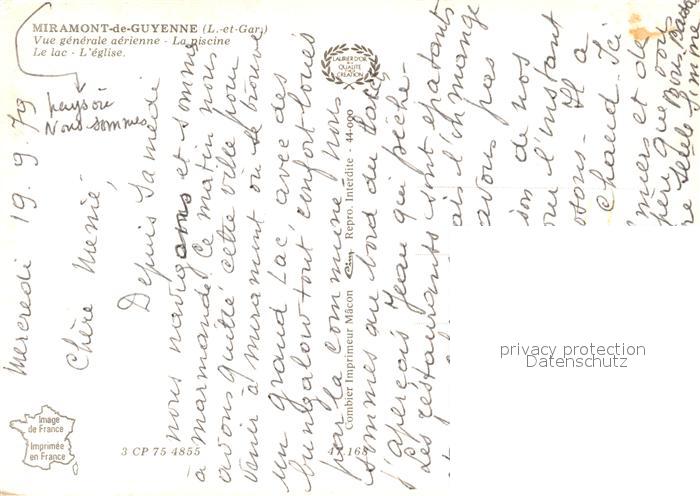 MIRAMONT-de-GUYENNE (L.-et-Gar.)
Vue générale aérienne - La piscine
Le lac - L'église.
pays où
Nous sommes
LAURIER D'OR
DE LA
QUALITÉ
DE LA
CRÉATION
Mercredi 19. 9. 79
Chère Mémé,
Depuis Samedi
nous navigons et sommes
à marmande. Ce matin nous
avons quitté cette ville pour
venir à miramont où se trouve
un grand Lac, avec des
bungalow tout confort loués
par la Commune nous
sommes au bord du lac,
j'aperçois Jean qui pêche.
Les restaurants sont épatants
ais l'ch mange
avons pas
son de nos
our l'instant
osons. Il a
chaud. Ici
miers et de
père que vous
Combier Imprimeur Mâcon Cim Repro. Interdite - 44-000
Image
de France
Imprimée
en France
3 CP 75 4855
47.168
privacy protection
Datenschutz